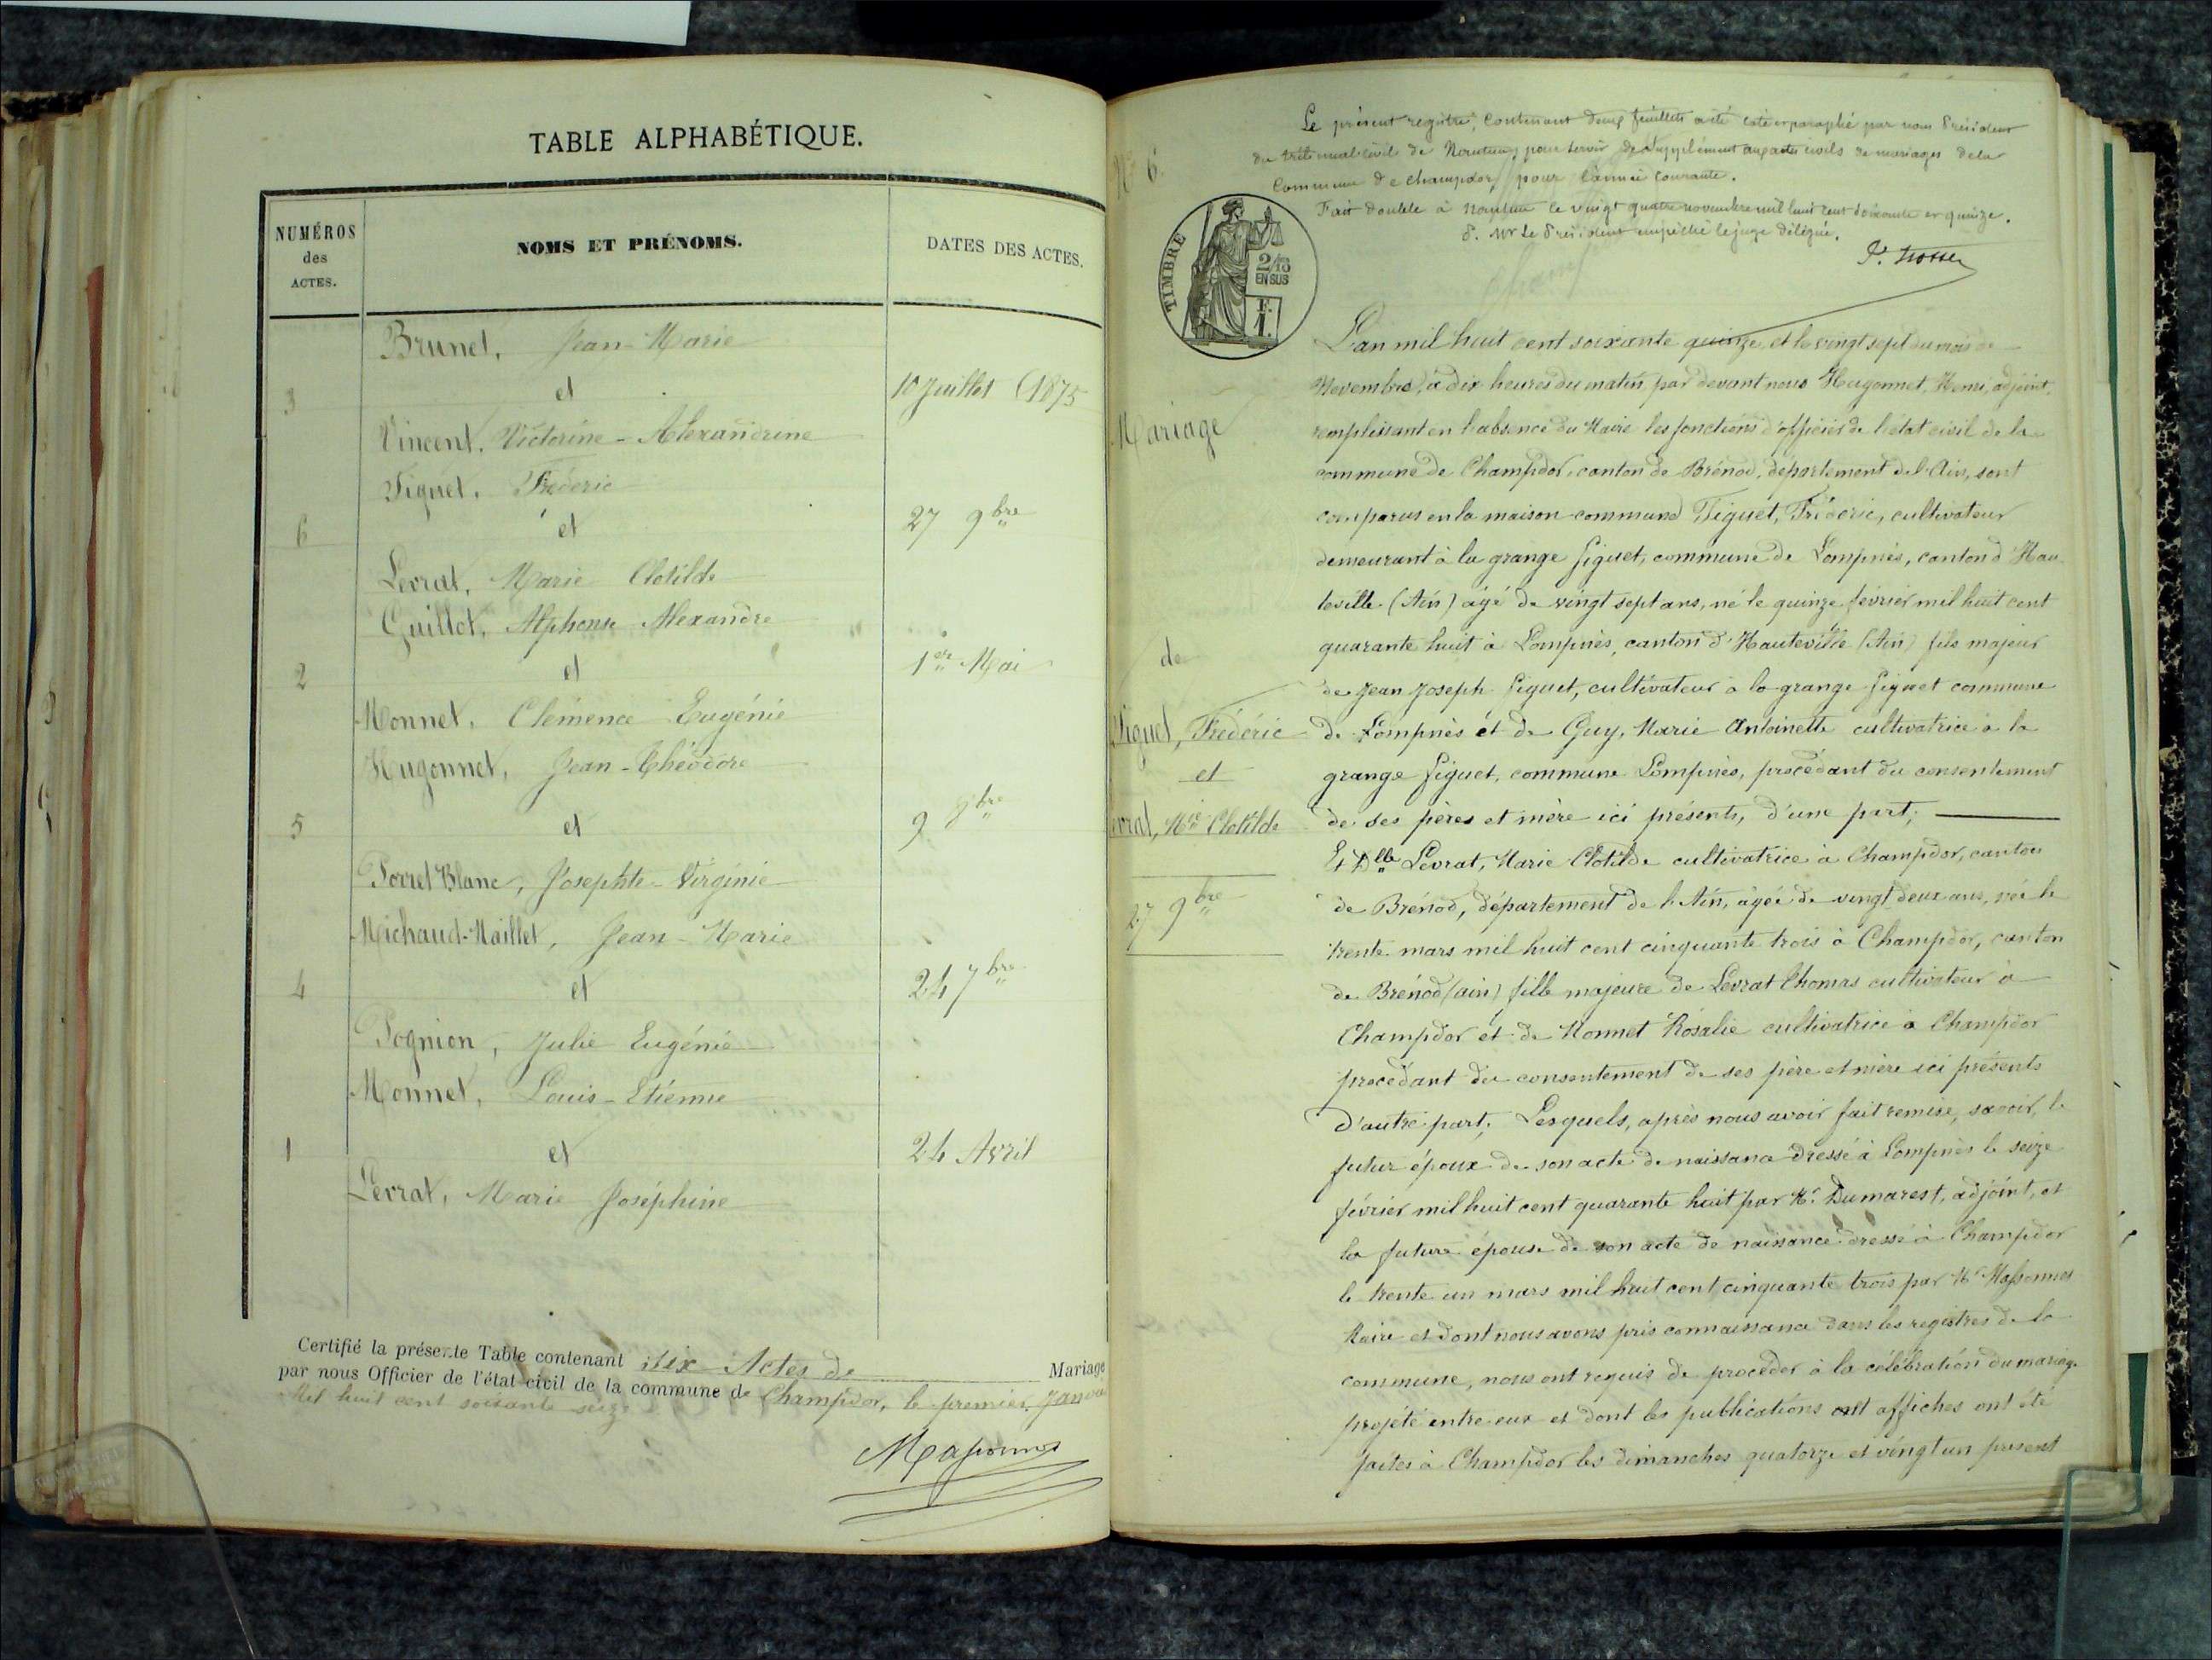 TABLE ALPHABÉTIQUE.
NUMÉROS
des
ACTES.
NOMS ET PRÉNOMS.
DATES DES ACTES.
Brunet, Jean-Marie
3 et 10 Juillet (1875
Vincent, Victorine-Alexandrine
Figuet, Frédéric
6 et 27 9bre
Levrat, Marie Clotilde
Guillot, Alphonse Alexandre
2 et 1er Mai
Monnet, Clémence Eugénie
Hugonnet, Jean-Théodore
5 et 9 8bre
Porret Blanc, Josephte-Virginie
Michaud-Maillet, Jean-Marie
4 et 24 7bre
Pognion, Julie Eugénie
Monnet, Louis-Etienne
1 et 24 Avril
Levrat, Marie Joséphine
Certifié la présente Table contenant six Actes de Mariage
par nous Officier de l'état-civil de la commune de Champdor, le premier Janvier
Mil huit cent soixante seize
Massonnet
Le présent registre, contenant deux feuillets a été coté et paraphé par nous Président
du tribunal civil de Nantua, pour servir de Supplément aux actes civils de mariages de la
Commune de Champdor, pour l'année courante.
Fait double à Nantua le vingt quatre novembre mil huit cent soixante et quinze.
P. Mr le Président empêché le juge délégué,
No 6.
TIMBRE
2/10
EN SUS
L'an mil huit cent soixante quinze, et le vingt sept du mois de
Novembre, à dix heures du matin, par devant nous Hugonnet, Henri, adjoint,
Mariage
remplissant en l'absence du Maire les fonctions d'officier de l'état civil de la
commune de Champdor, canton de Brénod, département de l'Ain, sont
comparus en la maison commune Figuet, Frédéric, cultivateur
demeurant à la grange figuet, commune de Lompnès, canton d'Hau
teville (Ain) âgé de vingt sept ans, né le quinze février mil huit cent
quarante huit à Lompnès, canton d'Hauteville (Ain) fils majeur
de
de Jean Joseph figuet, cultivateur à la grange figuet commune
Figuet, Frédéric
de Lompnès et de Guy, Marie Antoinette cultivatrice à la
et
grange figuet, commune Lompnès, procédant du consentement
evrat, Mie Clotilde
de ses pères et mère ici présents, d'une part;
Et Dlle Levrat, Marie Clotilde cultivatrice à Champdor, canton
27 9bre
de Brénod, département de l'Ain, âgée de vingt deux ans, née le
trente mars mil huit cent cinquante trois à Champdor, canton
de Brénod (ain) fille majeure de Levrat Thomas cultivateur à
Champdor et de Monnet Rosalie cultivatrice à Champdor
procédant du consentement de ses père et mère ici présents
d'autre part; Lesquels, après nous avoir fait remise, savoir, le
futur époux de son acte de naissance dressé à Lompnès le seize
février mil huit cent quarante huit par Mr. Dumarest, adjoint, et
la future épouse de son acte de naissance dressé à Champdor
le trente un mars mil huit cent cinquante trois par Mr Massonnet
Maire et dont nous avons pris connaissance dans les registres de la
commune, nous ont requis de procéder à la célébration du mariage
projeté entre eux et dont les publications et affiches ont été
faites à Champdor les dimanches quatorze et vingt un présent